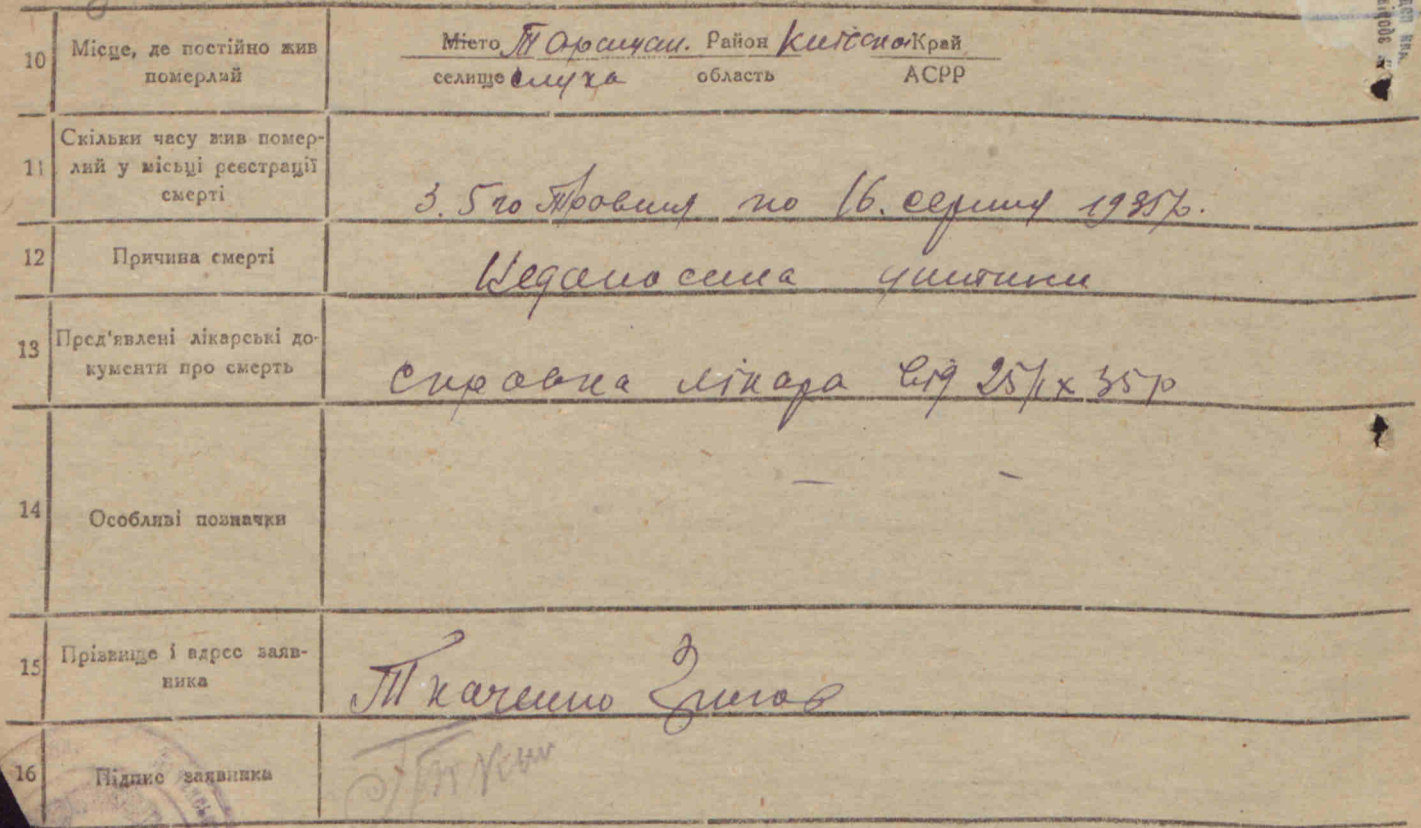 10 Місце, де постійно жив Місто Таращан. Район Київська Край
померлий селище Слуха область АСРР
11 Скільки часу жив помер-
лий у місьці реєстрації
смерті 3. 5го Травня по 16. серпня 1935р.
12 Причина смерті Недоносина
13 Пред'явлені лікарські до-
кументи про смерть Справка лікара від 25/ІХ 35р
14 Особливі позначки — —
15 Прізвище і адрес заяв-
ника Ткаченко
16 Підпис заявника